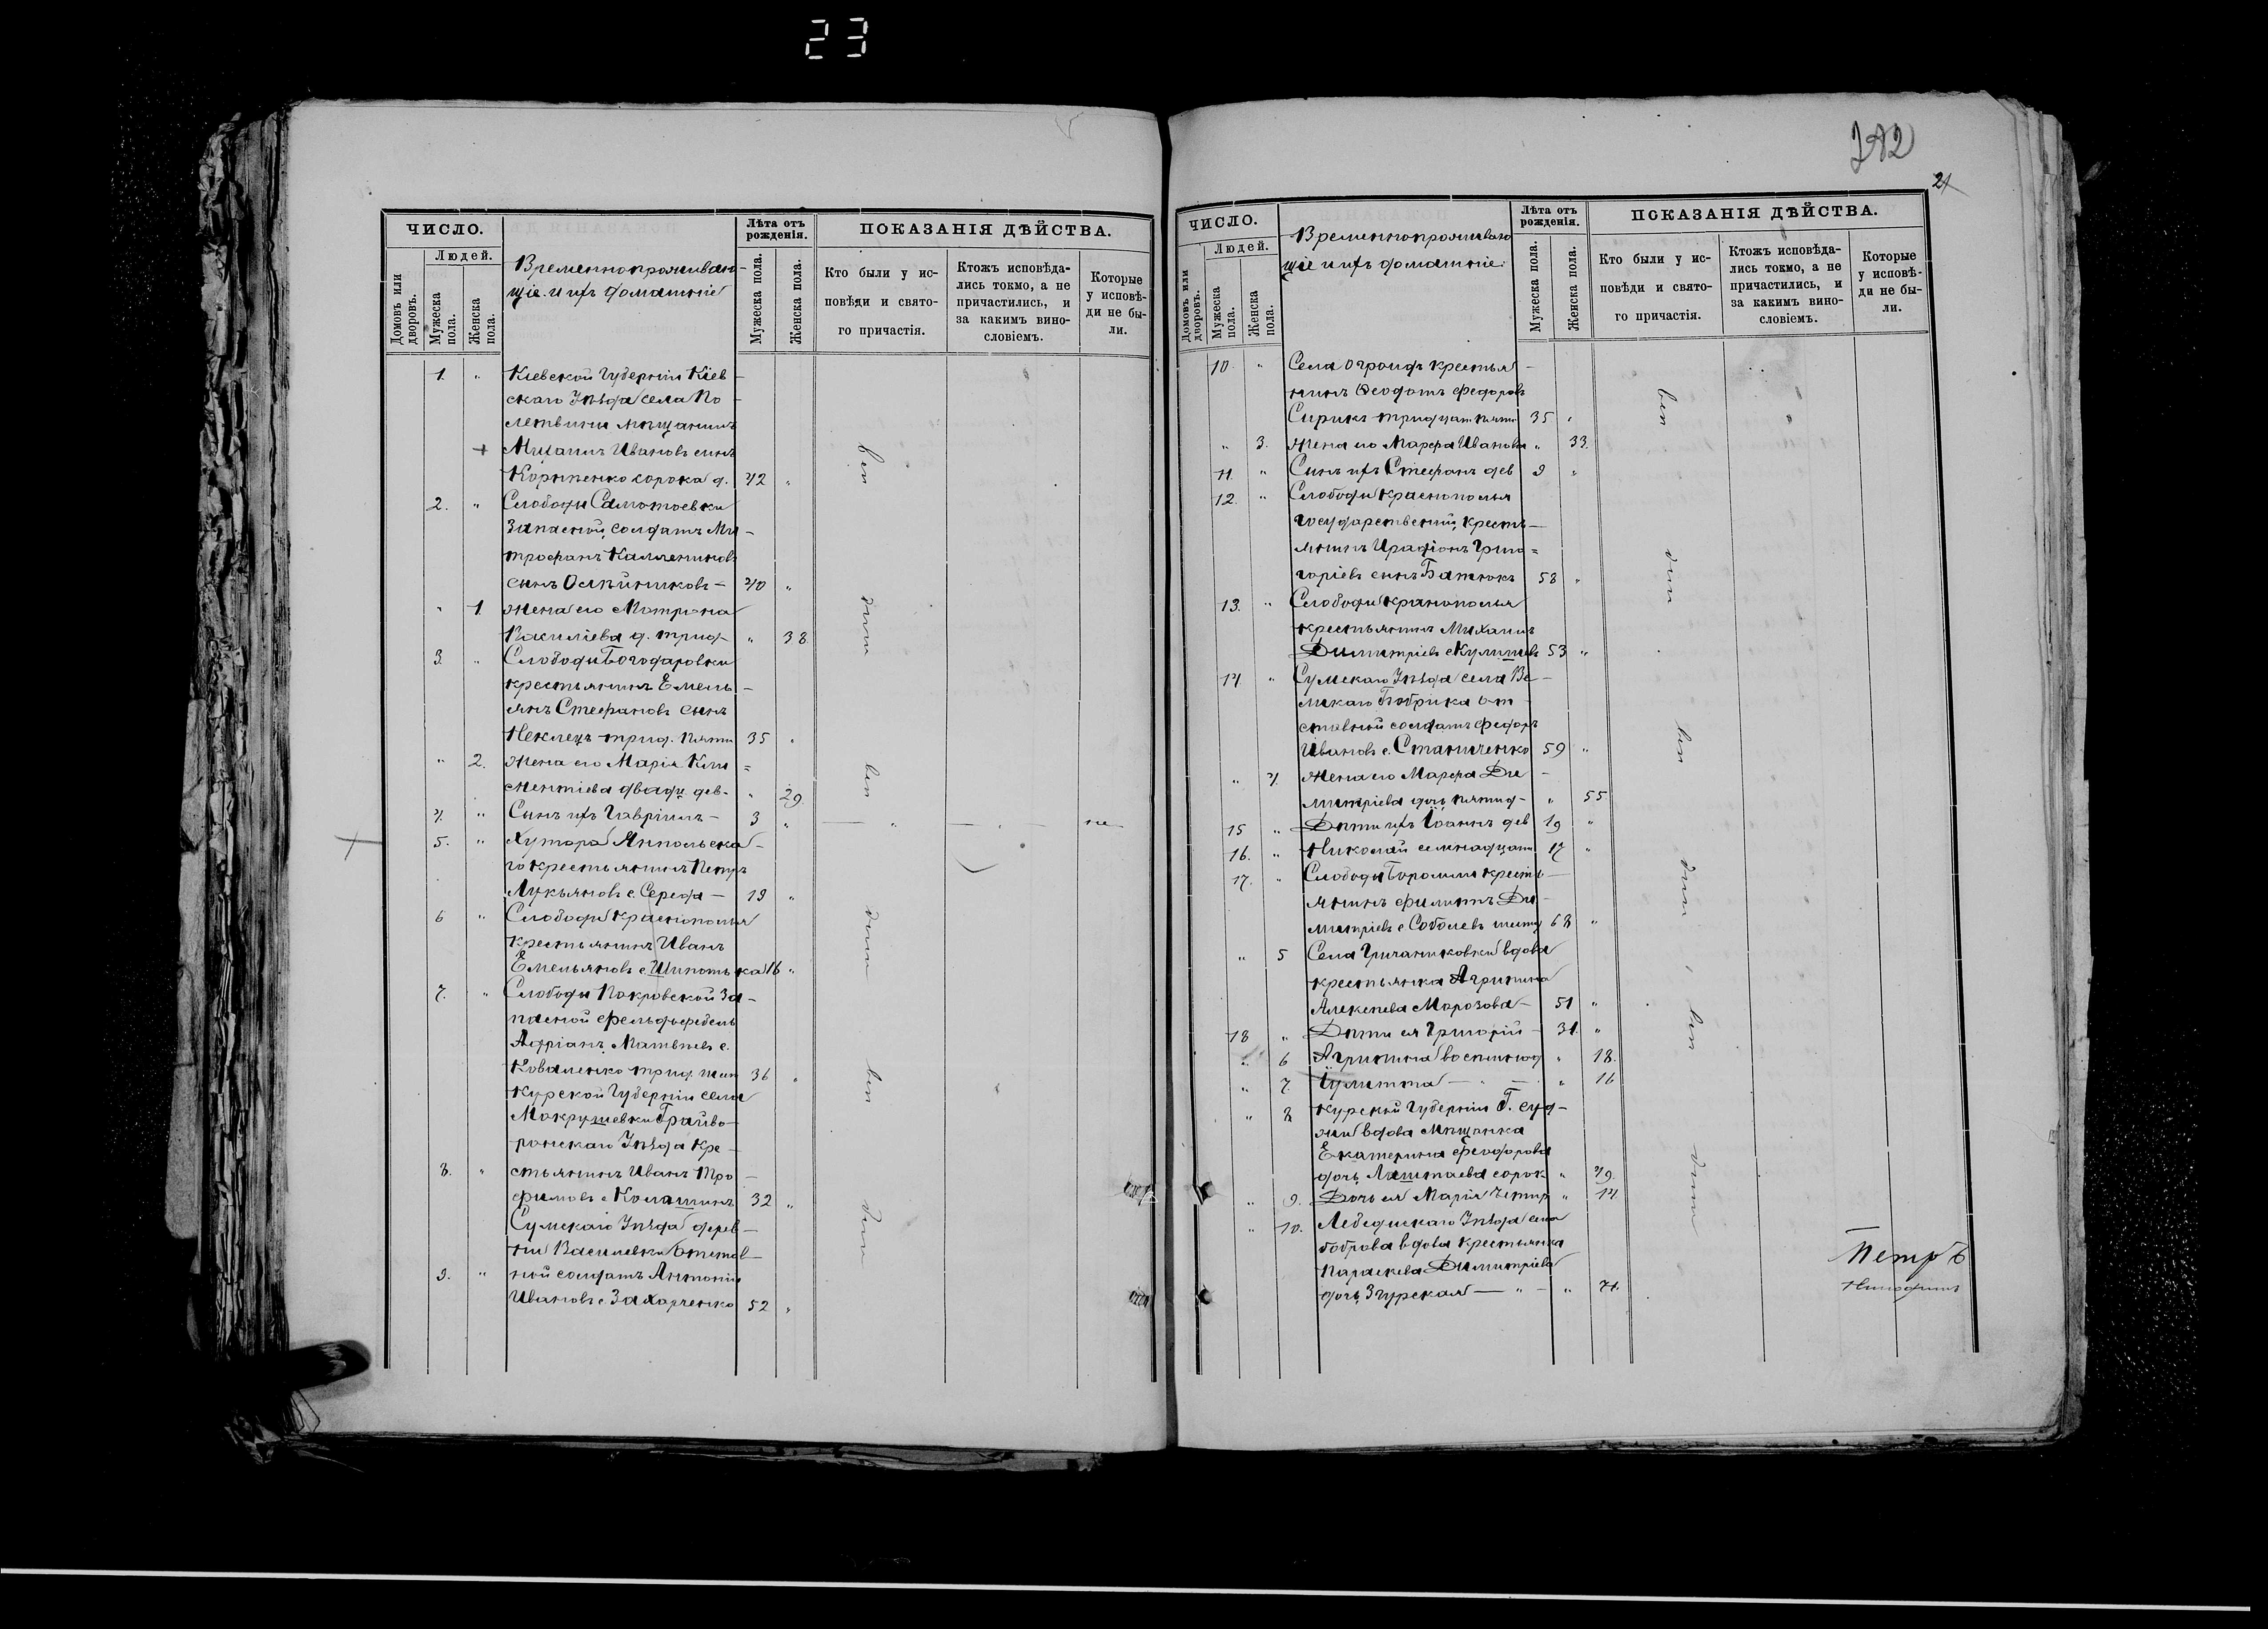 23
ЧИСЛО.
Людей.
Домовъ или дворовъ.
Мужеска пола.
Женска пола.
Временнопроживаю-
щіе и ихъ домашніе
Лѣта отъ рожденія.
Мужеска пола.
Женска пола.
ПОКАЗАНІЯ ДѢЙСТВА.
Кто были у ис-
повѣди и свято-
го причастія.
Ктожъ исповѣда-
лись токмо, а не
причастились, и
за какимъ вино-
словіемъ.
Которые
у исповѣ-
ди не бы-
ли.
1. " Кіевской Губерніи Кіев-
скаго Уѣзда села
мѣщанинъ
+ Михаилъ Ивановъ сынъ
сорока д. 42 "
2. " Слободы Самотоевки
Запасной солдатъ Ми-
трофанъ Каллениковъ
сынъ 40 "
" 1. Жена его Матрона
Василіева д. трид- " 38
3. " Слободы Богодаровки
крестьянинъ Емель-
янъ Стефановъ сынъ
трид. пяти 35 "
" 2. Жена его Марія Кли=
ментіева двадц. дев- " 29.
4. " Сынъ ихъ Гавріилъ - 3 " — " — " — не
5. " Хутора Янпольска-
го крестьянинъ Петръ
Лукьяновъ с. Середа - 19 "
6 " Слободы Краснополья
крестьянинъ Иванъ
Емельяновъ с. Шипотька 16 "
7. " Слободы Покровской За-
пасной фельдфебель
Адріанъ Матвѣевъ с.
Коваленко трид. шт 36 "
Курской Губерніи села
Мокрушевки Грайво-
ронскаго Уѣзда Кре-
8. " стьянинъ Иванъ Тро-
фимовъ с Колашинъ 32 "
Сумскаго Уѣзда дерев-
ни Василевки Отстав-
9. " ной солдатъ Антоній
Ивановъ с. Захарченко 52 "
вси
дити
вси
дити
вси
дити
21
ЧИСЛО.
Людей.
Домовъ или дворовъ.
Мужеска пола.
Женска пола.
Временнопроживаю
щіе и ихъ домашніе.
Лѣта отъ рожденія.
Мужеска пола.
Женска пола.
ПОКАЗАНІЯ ДѢЙСТВА.
Кто были у ис-
повѣди и свято-
го причастія.
Ктожъ исповѣда-
лись токмо, а не
причастились, и
за какимъ вино-
словіемъ.
Которые
у исповѣ-
ди не бы-
ли.
10. " Села крестья-
нинъ Ѳеодотъ Федоровъ
Сирикъ тридцати пяти 35 "
" 3. Жена его Марфа Иванова " 33.
11. " Сынъ ихъ Стефанъ дев 9 "
12. " Слободы Краснополья
государственный кресть-
янинъ Ирадіонъ Григо=
горіевъ сынъ Батюкъ 58 "
13. " Слободы Кранополья
крестьянинъ Михаилъ
Димитріевъ с Кулишевъ 53 "
14 " Сумскаго Уѣзда села Ве-
ликаго Бобрика от-
ставной солдатъ Федоръ
Ивановъ с. Станиченко 59 "
" 4. Жена его Марфа Ди-
митріева дочь пятид- " 55
15 " Дѣти ихъ Іоаннъ дев 19 "
16. " Николай семнадцати 17 "
17. " Слободы Боромли кресть-
янинъ Филиппъ Ди-
митріевъ с Соболевъ шест 68 "
" 5 Села Гричаниковки вдова
крестьянка Агрипина
Алексѣева Марозова - 51 "
18 " Дѣти ея Григорій - 31. "
" 6 Агрипина восемнад " 18.
" 7. Іулитта — " — " 16
" 8 Курской Губерніи Г. Суд-
жи вдова мѣщанка
Екатерина Феодорова
дочь Лаштаева сорок " 49.
" 9. Дочь ея Марія четыр " 14
" 10. Лебединскаго Уѣзда села
Боброва вдова крестьянка
Параскева Димитріева
дочь Згурская — " — " 71.
вси
дити
вси
дити
вси
дити
Петръ